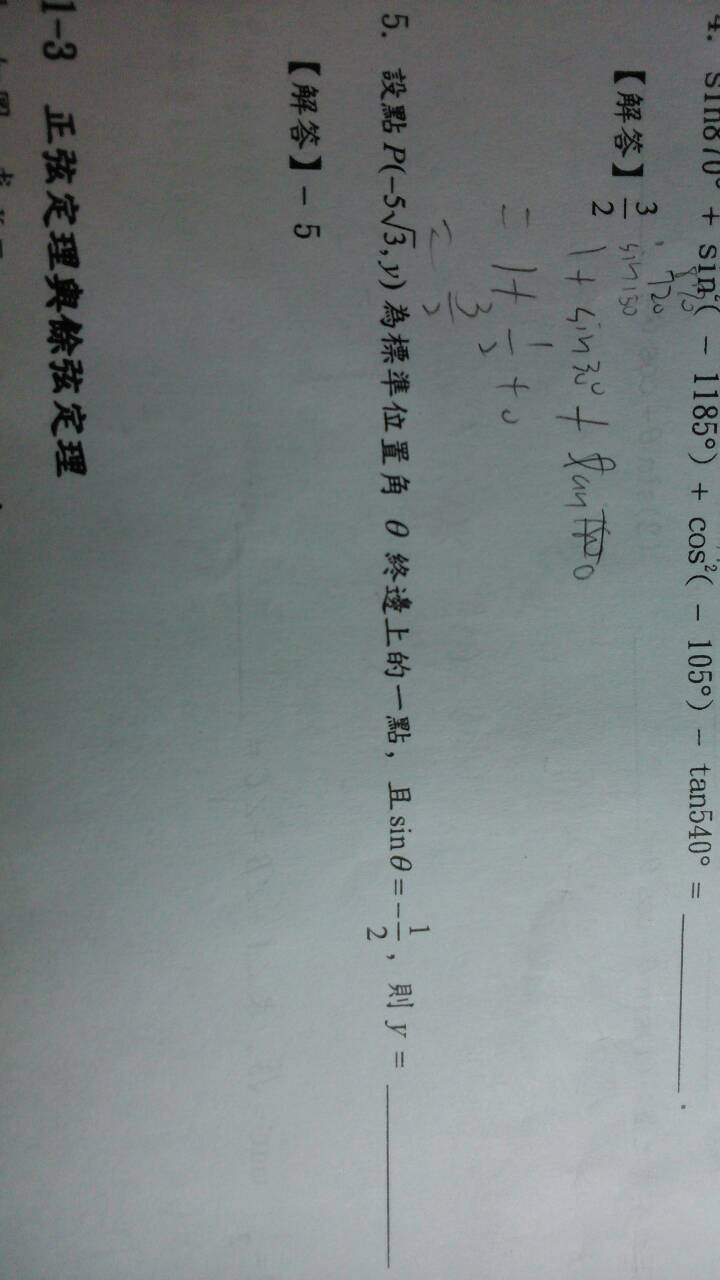 4. sin870° + sin²( − 1185°) + cos²( − 105°) − tan540° = ________.
【解答】3/2
sin150
1 + sin30 +
= 1 + 1/2 + 0
= 3/2
5. 設點 P(−5√3, y) 為標準位置角 θ 終邊上的一點，且 sin θ = −1/2，則 y = ________
【解答】− 5
1-3 正弦定理與餘弦定理